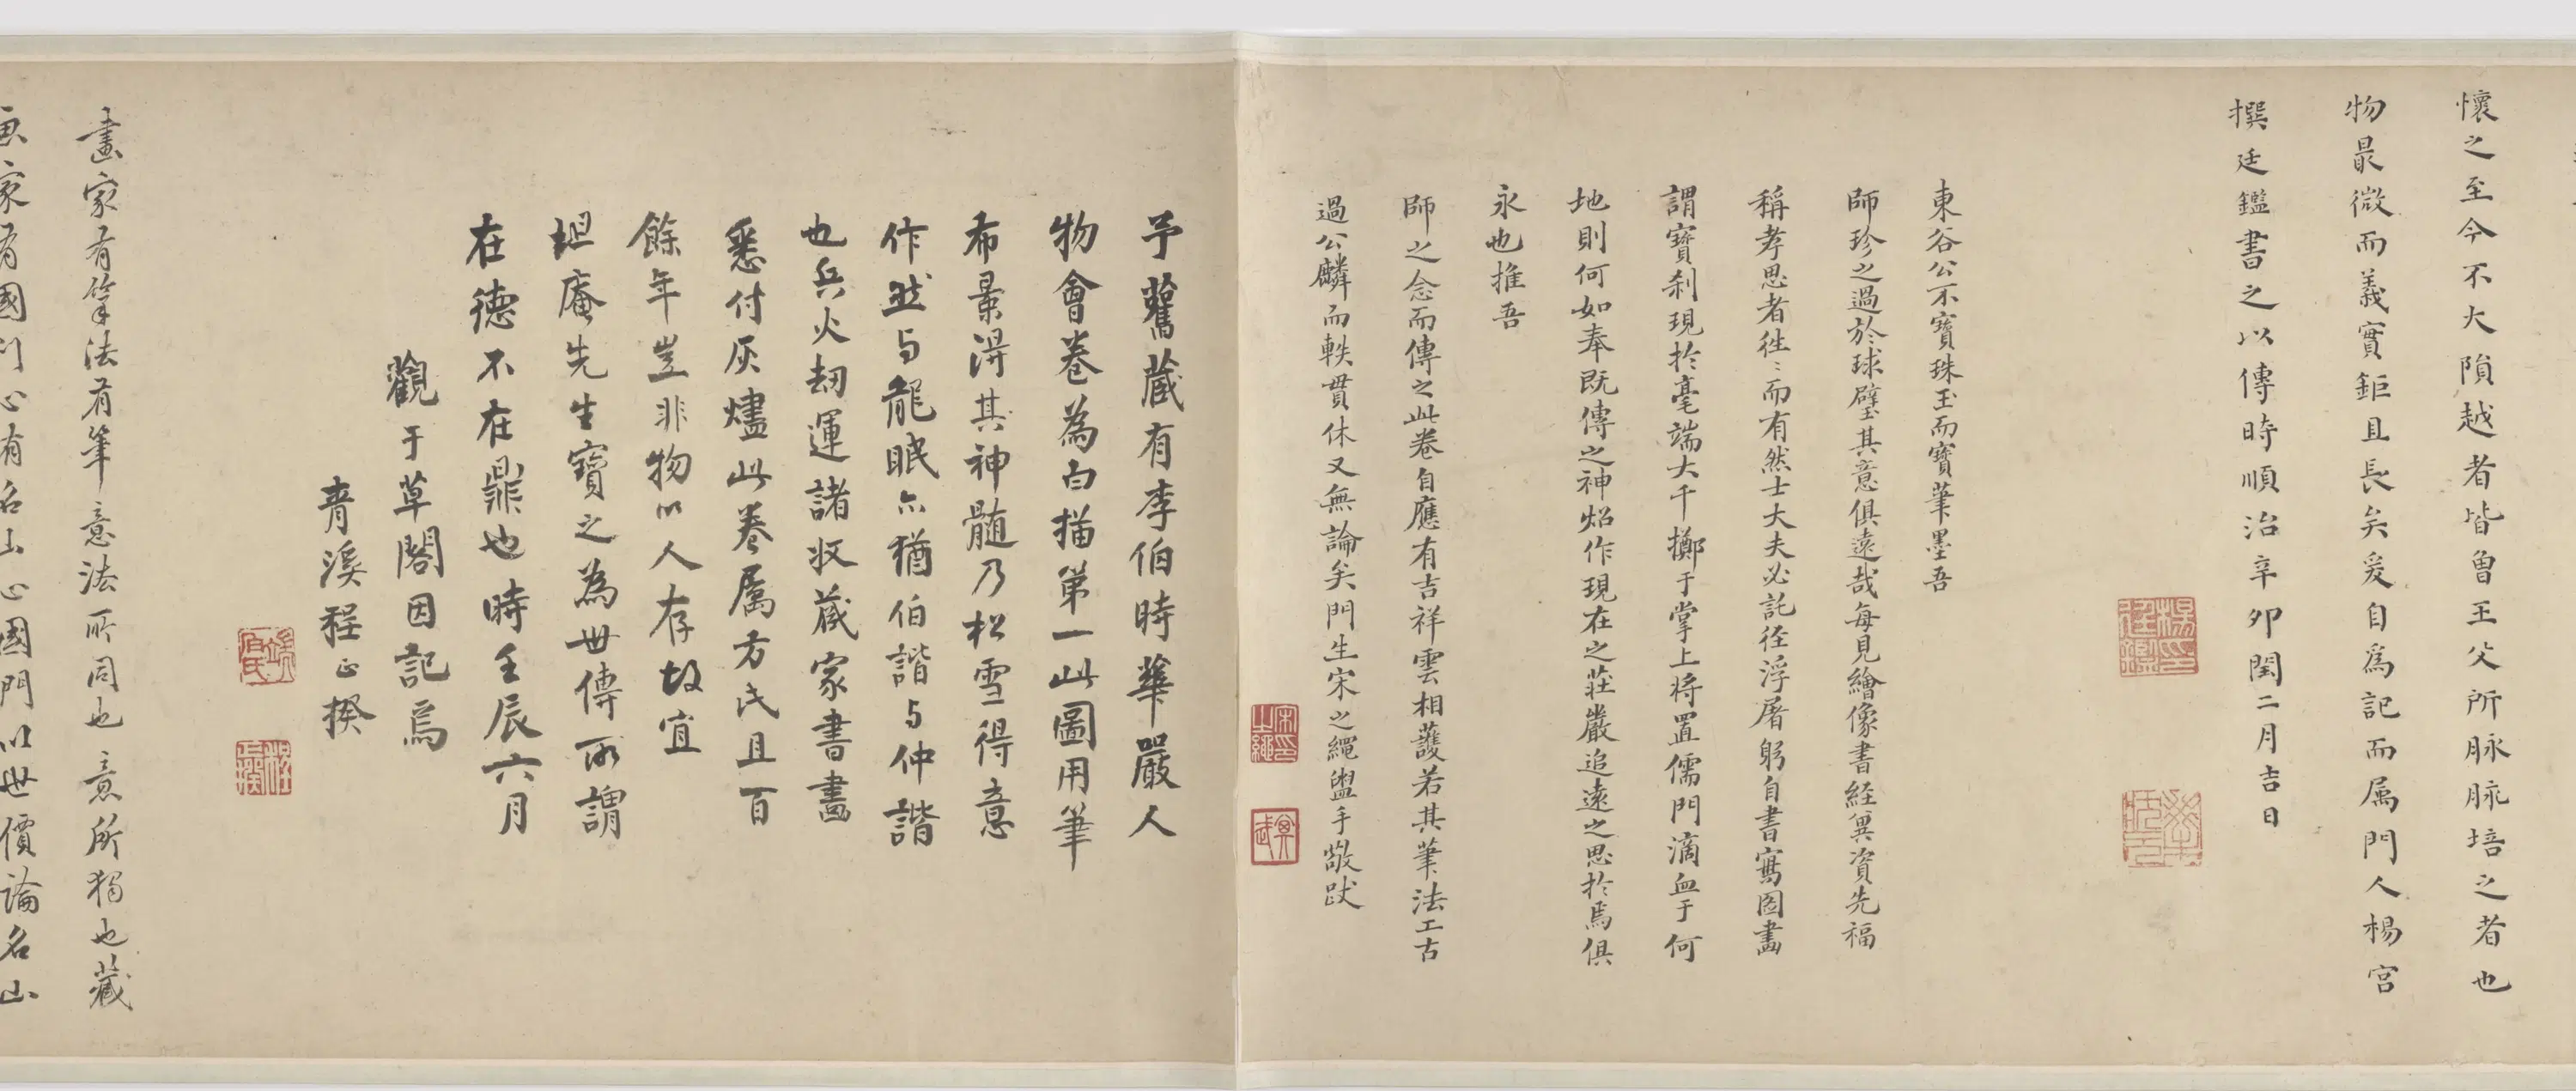 懷之至今不大隕越者皆魯王父所脉脉培之者也
物最微而義實鉅且長矣爰自爲記而属門人楊宫
撰廷鑑書之以傳時順治辛卯閏二月吉日
東谷公不寶珠玉而寶筆墨吾
師珍之過於球璧其意俱遠哉每見繪像書経兾資先福
稱孝思者徃〻而有然士大夫必託徑浮屠躬自書寫图畫
謂寶刹現扵毫端大千擲于掌上将置儒門滴血于何
地則何如奉既傳之神炤作現在之莊嚴追遠之思扵焉俱
永也推吾
師之念而傳之此卷自應有吉祥雲相護若其筆法工古
過公麟而軼貫休又無論矣門生宋之繩盥手敬跋
予舊蔵有李伯時華嚴人
物會卷為白描第一此圖用筆
布景淂其神髓乃松雪得意
作此与龍眠亦猶伯諧与仲諧
也兵火刼運諸収蔵家書畫
悉付灰燼此卷属方氏且百
餘年豈非物以人存故宜
坦庵先生寶之為世傳所謂
在德不在鼎也時壬辰六月
觀于草閣因記焉
青溪程正揆
畫家有筆法有筆意法所同也意所獨也藏
画家有國門心有名山心國門以世價論名山